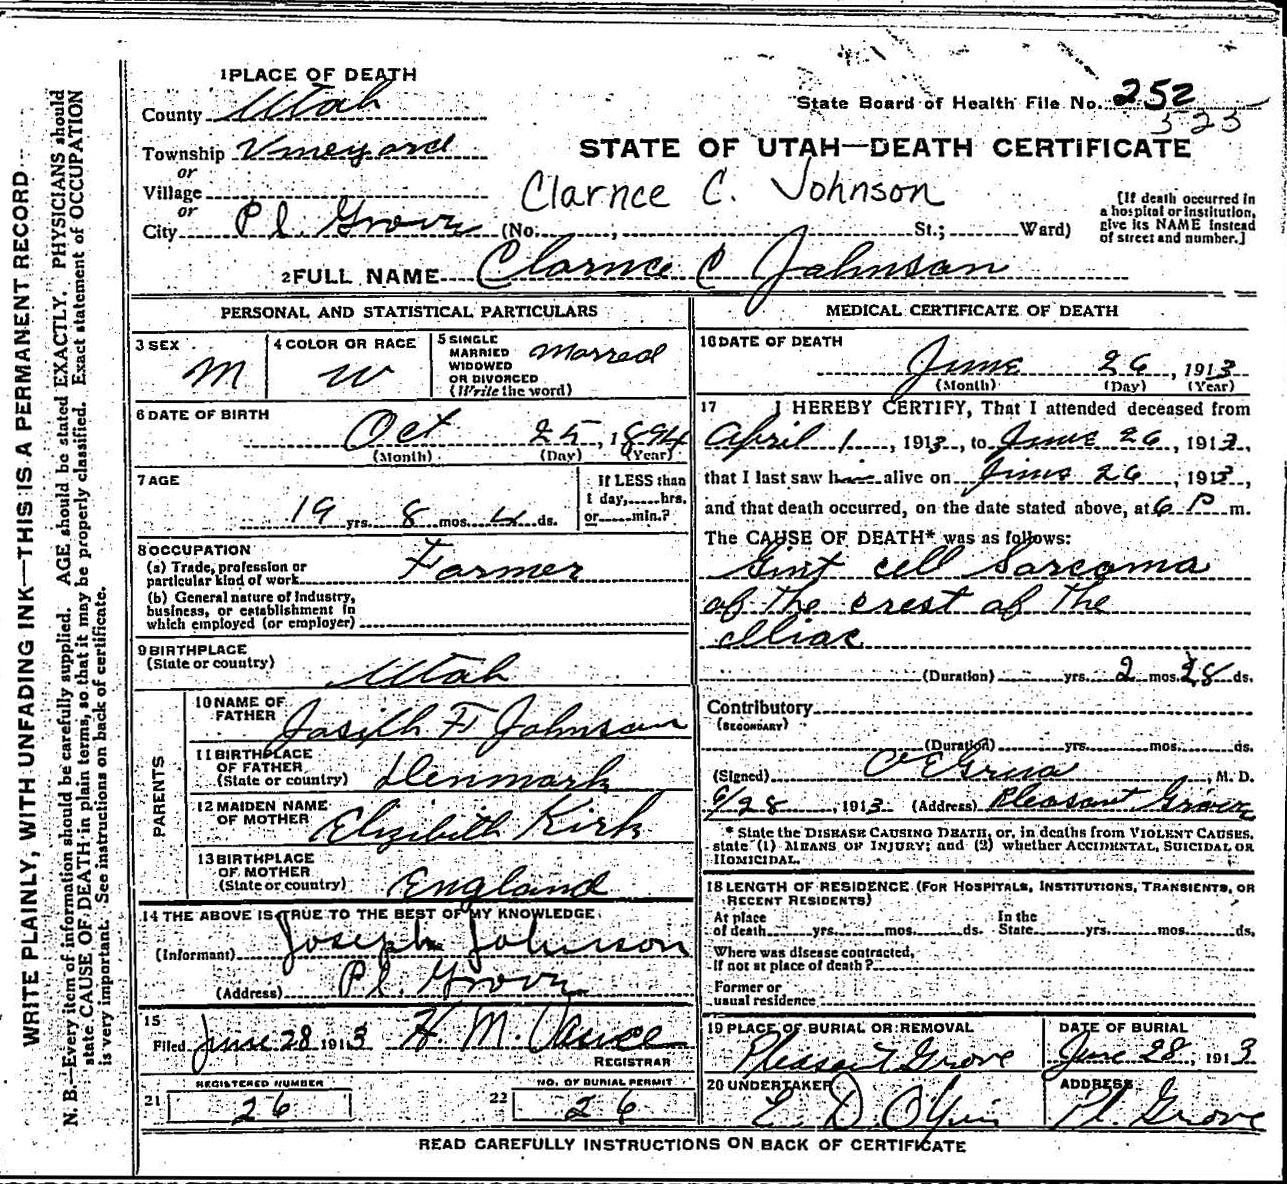 WRITE PLAINLY, WITH UNFADING INK—THIS IS A PERMANENT RECORD
N. B.—Every item of information should be carefully supplied. AGE should be stated EXACTLY. PHYSICIANS should
state CAUSE OF DEATH in plain terms, so that it may be properly classified. Exact statement of OCCUPATION
is very important. See instructions on back of certificate.
1 PLACE OF DEATH
County Utah
Township Vineyard
or
Village
or
City Pl. Grove (No. , St.; Ward)
State Board of Health File No. 252
523
STATE OF UTAH—DEATH CERTIFICATE
Clarnce C. Johnson
[If death occurred in
a hospital or institution,
give its NAME instead
of street and number.]
2 FULL NAME Clarnce C Johnson
PERSONAL AND STATISTICAL PARTICULARS
3 SEX M
4 COLOR OR RACE W
5 SINGLE
MARRIED
WIDOWED
OR DIVORCED
(Write the word) Marred
6 DATE OF BIRTH
Oct 25, 1894
(Month) (Day) (Year)
7 AGE
19 yrs. 8 mos. 4 ds.
If LESS than
1 day,.....hrs.
or.....min.?
8 OCCUPATION
(a) Trade, profession or
particular kind of work Farmer
(b) General nature of Industry,
business, or establishment in
which employed (or employer)
9 BIRTHPLACE
(State or country) Utah
PARENTS
10 NAME OF
FATHER Joseph F Johnson
11 BIRTHPLACE
OF FATHER
(State or country) Denmark
12 MAIDEN NAME
OF MOTHER Elizibeth Kirk
13 BIRTHPLACE
OF MOTHER
(State or country) England
14 THE ABOVE IS TRUE TO THE BEST OF MY KNOWLEDGE.
(Informant) Joseph Johnson
(Address) Pl. Grove
15
Filed June 28 1913 H. M.
REGISTRAR
21 REGISTERED NUMBER
26
22 NO. OF BURIAL PERMIT
26
MEDICAL CERTIFICATE OF DEATH
16 DATE OF DEATH
June 26, 1913
(Month) (Day) (Year)
17 I HEREBY CERTIFY, That I attended deceased from
April 1, 1913, to June 26, 1913,
that I last saw him alive on June 26, 1913,
and that death occurred, on the date stated above, at 6 P m.
The CAUSE OF DEATH* was as follows:
Gint cell Sarcoma
of the crest of the
Iliac
(Duration) yrs. 2 mos. 28 ds.
Contributory
(SECONDARY)
(Duration) yrs. mos. ds.
(Signed) , M. D.
6/28, 1913 (Address) Pleasant Grove
* State the DISEASE CAUSING DEATH, or, in deaths from VIOLENT CAUSES,
state (1) MEANS OF INJURY; and (2) whether ACCIDENTAL, SUICIDAL OR
HOMICIDAL.
18 LENGTH OF RESIDENCE (FOR HOSPITALS, INSTITUTIONS, TRANSIENTS, OR
RECENT RESIDENTS)
At place
of death yrs. mos. ds.
In the
State yrs. mos. ds.
Where was disease contracted,
if not at place of death?
Former or
usual residence
19 PLACE OF BURIAL OR REMOVAL
Pleasant Grove
DATE OF BURIAL
June 28, 1913
20 UNDERTAKER
E. D.
ADDRESS
Pl. Grove
READ CAREFULLY INSTRUCTIONS ON BACK OF CERTIFICATE